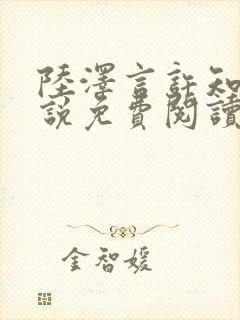 陸澤言許知
說免費閱讀
金智媛